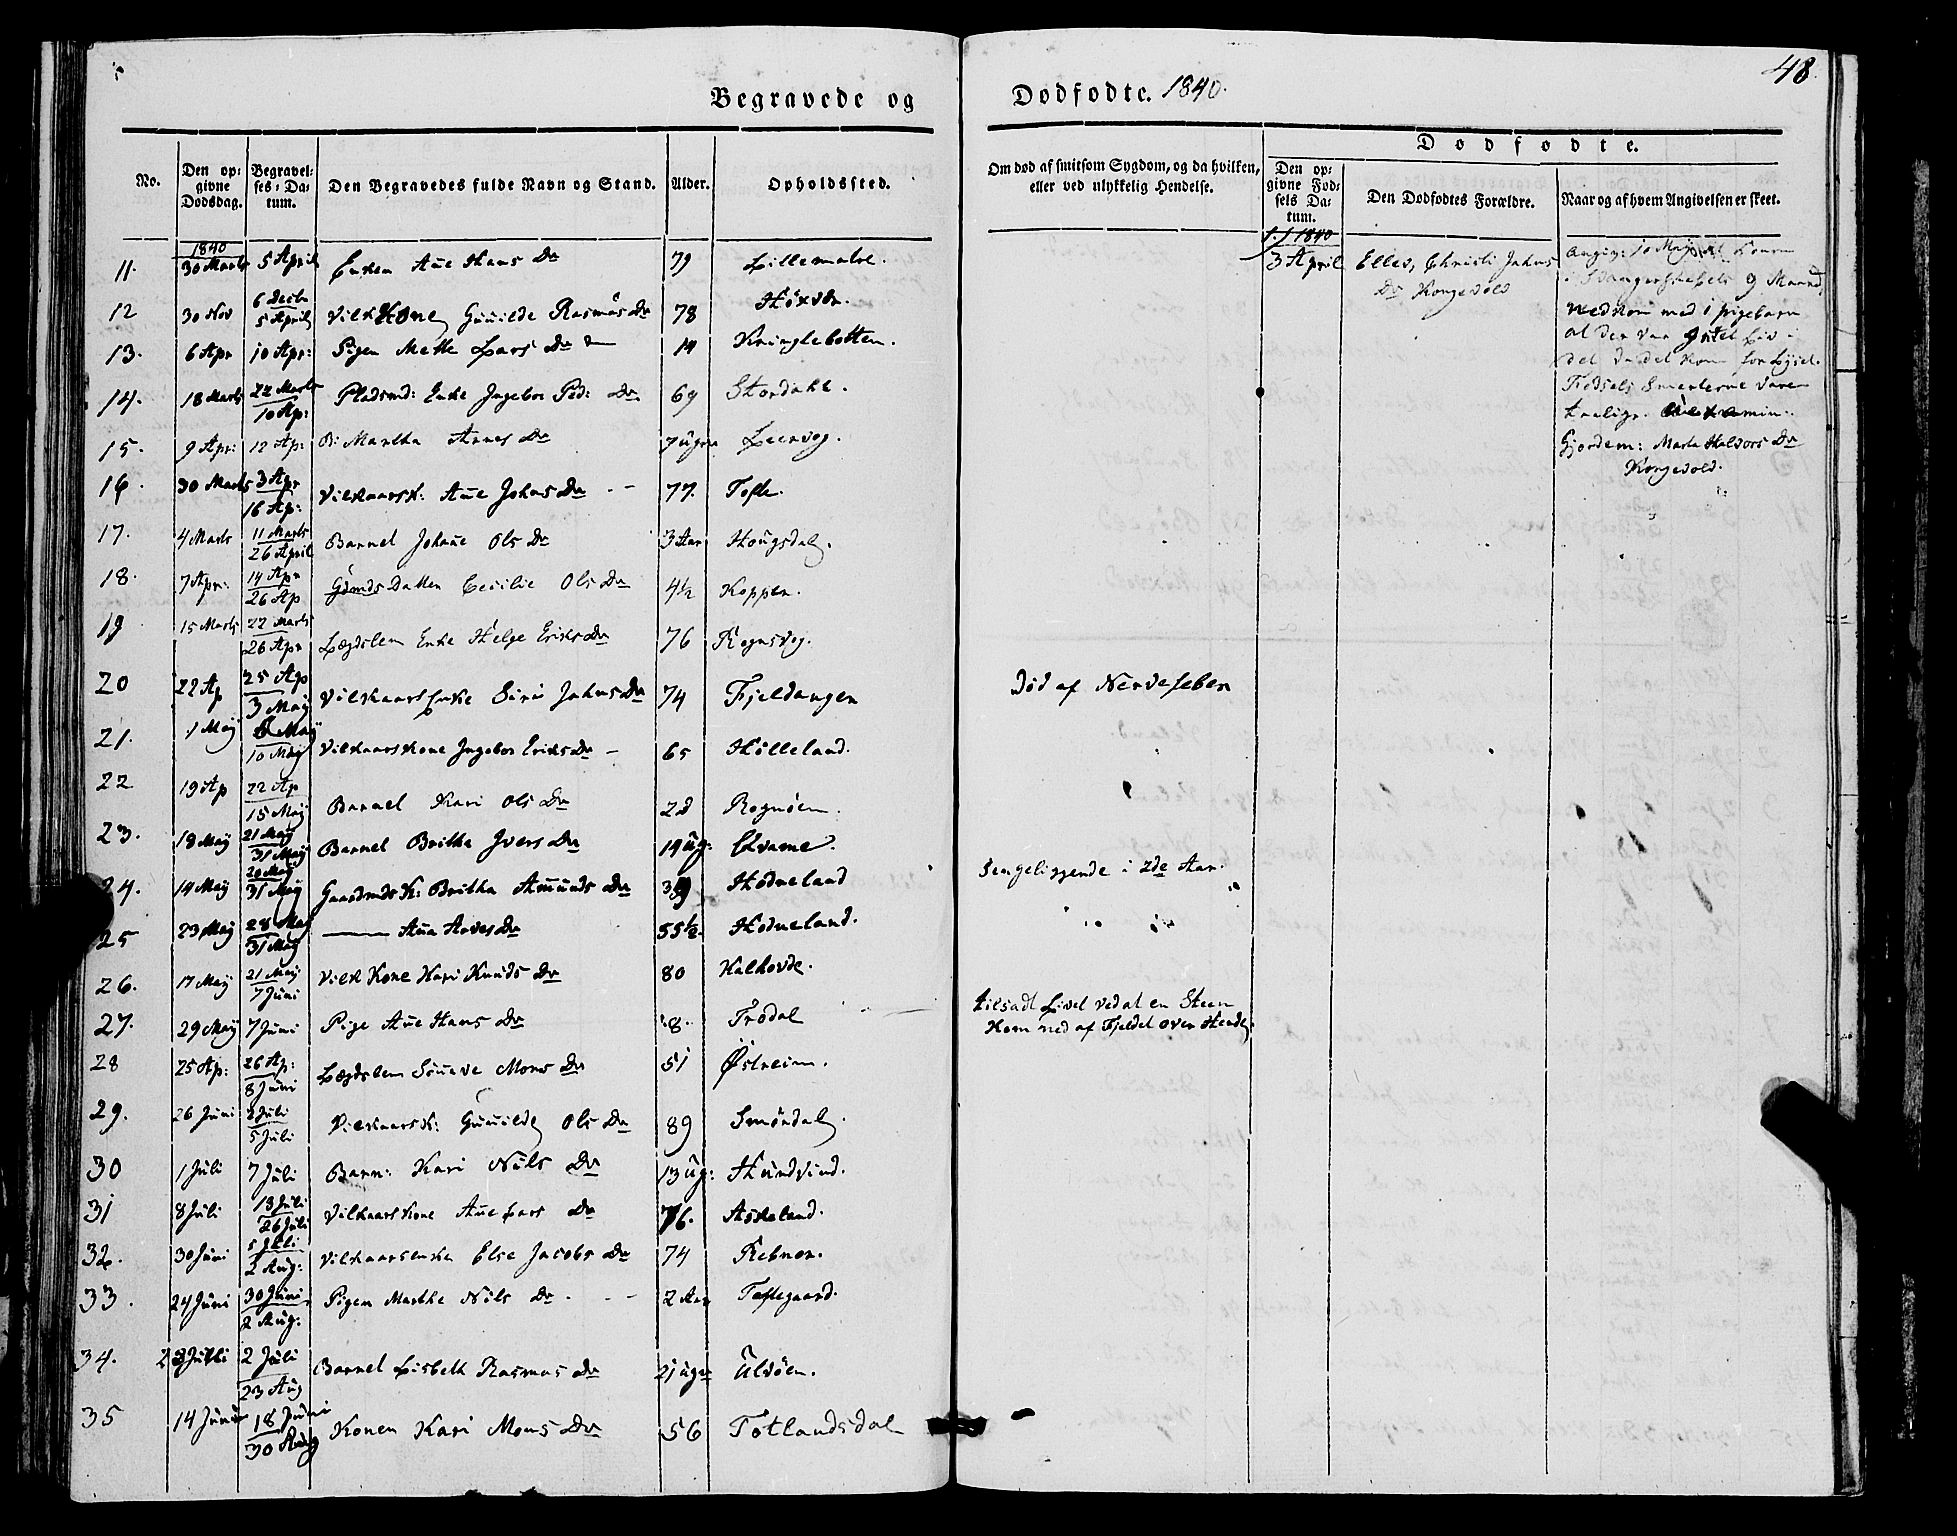 Begravede og
Dødfødte. 1840.
48.
No.
Den opgivne Dødsdag.
Begravelses-Datum.
Den Begravedes fulde Navn og Stand.
Alder.
Opholdssted.
Om død af smitsom Sygdom, og da hvilken, eller ved ulykkelig Hendelse.
Dødfødte.
Den opgivne Fødsels Datum.
Den Dødfødtes Forældre.
Naar og af hvem Angivelsen er skeet.
1840
11. 30 Marts 5 April Enken Ane Hans Dr 79 Lillematre.
12 30 Nov 6 Decbr 5 April Vilk Kone Gunilde Rasmus Dr 78
13. 6 Apr 10 Apr: Pigen Mette Lars Dr 14 Kringlebotten.
14. 18 Marts 22 Marts 10 Ap: Pladsmd: Enke Ingebor Ped: Dr 69 Stordahl.
15. 9 Apr: 12 Ap: B: Martha Arnes Dr 7 Uger Leervog.
16. 30 Marts 3 Apr 16 Ap: Vilkaarsk: Ane Johns Dr 77. Tofte.
17. 4 Marts 11 Marts 26 April Barnet Johane Ols Dr 3 Aar Hougsdal.
18. 7 Apr: 14 Apr 26 Ap Datter Cecilie Ols Dr 4½ Koppen.
19 15 Marts 22 Marts 26 Apr Lægdslem Enke Helge Eriks Dr 76 Rognsvog.
20 22 Ap 25 Ap 3 May Vilkaars Enke Siri Johns Dr 74 Fjeldanger Død af Nervefeber
21. 1 May 6 May 10 May Vilkaarskone Ingebor Eriks Dr 65 Hølleland.
22 19 Ap 22 Ap 15 May Barnet Kari Ols Dr 2 d Rognøen.
23. 18 May 21 May 31 May Barnet Britha Ivers Dr 14 Ug: Qvame.
24. 14 May 20 May 31 May Gaardmdsk: Britha Amunds Dr 39 Hodneland Sengeliggende i 2de Aar.
25 23 May 28 May 31 May Dr 55½. Hodneland.
26. 17 May 21 May 7 Juni Vilk Kone Kari Knuds Dr 80 Halhovde.
27. 29 May 7 Juni Pige Ane Hans Dr 8. Trodal tilsadt Livet ved at en Steen
kom ned af Fjeldet over Hende.
28 25 Ap: 26 Ap: 8 Juni Lægdslem Mons Dr 51 Østreim.
29. 26 Juni 2 Juli 5 Juli Vilkaarsk: Gunilde Ols Dr 89 Smørdal.
30 1 Juli 7 Juli Barn: Kari Nils Dr 13 Ug: Hundvind.
31 8 Juli 13 Juli 26 Juli Vilkaarskone Ane Lars Dr 76. Askeland.
32. 30 Juni 5 Juli 2 Aug: Vilkaarsenke Else Jacobs Dr 74 Rebnor.
33. 24 Juni 30 Juni 2 Aug: Pigen Marthe Nils Dr 2 Aar Toftegaard.
34. Juli 2 Juli 23 Aug Barnet Lisbeth Rasmus Dr 21 Uger Ulvøen.
35 14 Juni 18 Juni 30 Aug Konen Kari Mons Dr 56 Totlandsdal
1840
3 April
Christi Johns
Dr Kongevold
Angiv: 10 May at Konen
i Svangerskabets 9 Maaned
nedkom med 1 pigebarn
at der var Liv i
det da det kom for Lyset.
Fødsels Smerterne vare
taalige.
Gjordem: Marta Halvors Dr
Kongevold.